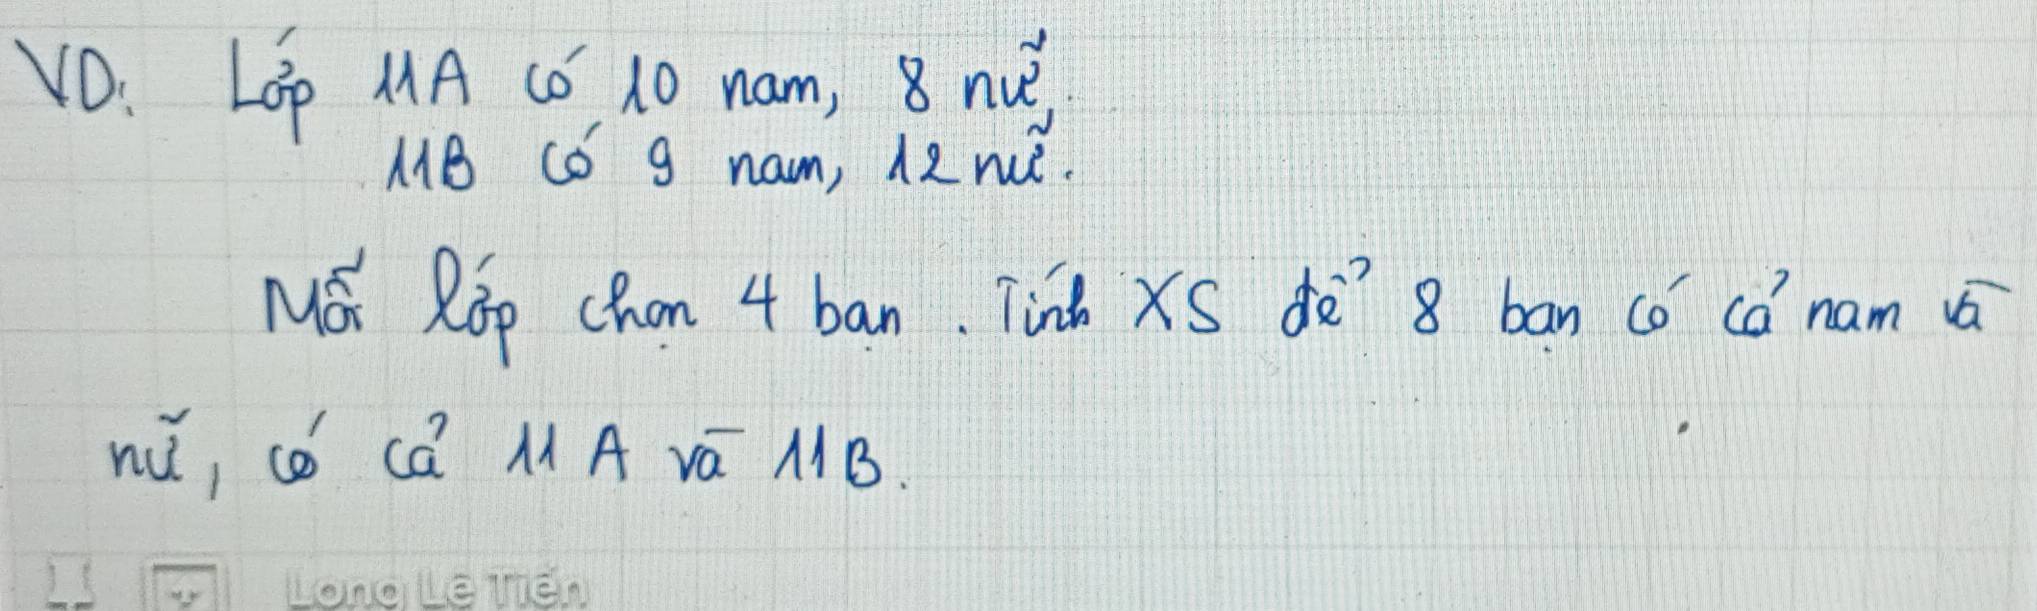 VD: Lớp 11A có 10 nam, 8 nữ.
11B có 9 nam, 12 nữ.
Mỗi lớp chọn 4 bạn. Tính XS để 8 bạn có cả nam và
nữ, có cả 11A và 11B.
Long Lê Tiến